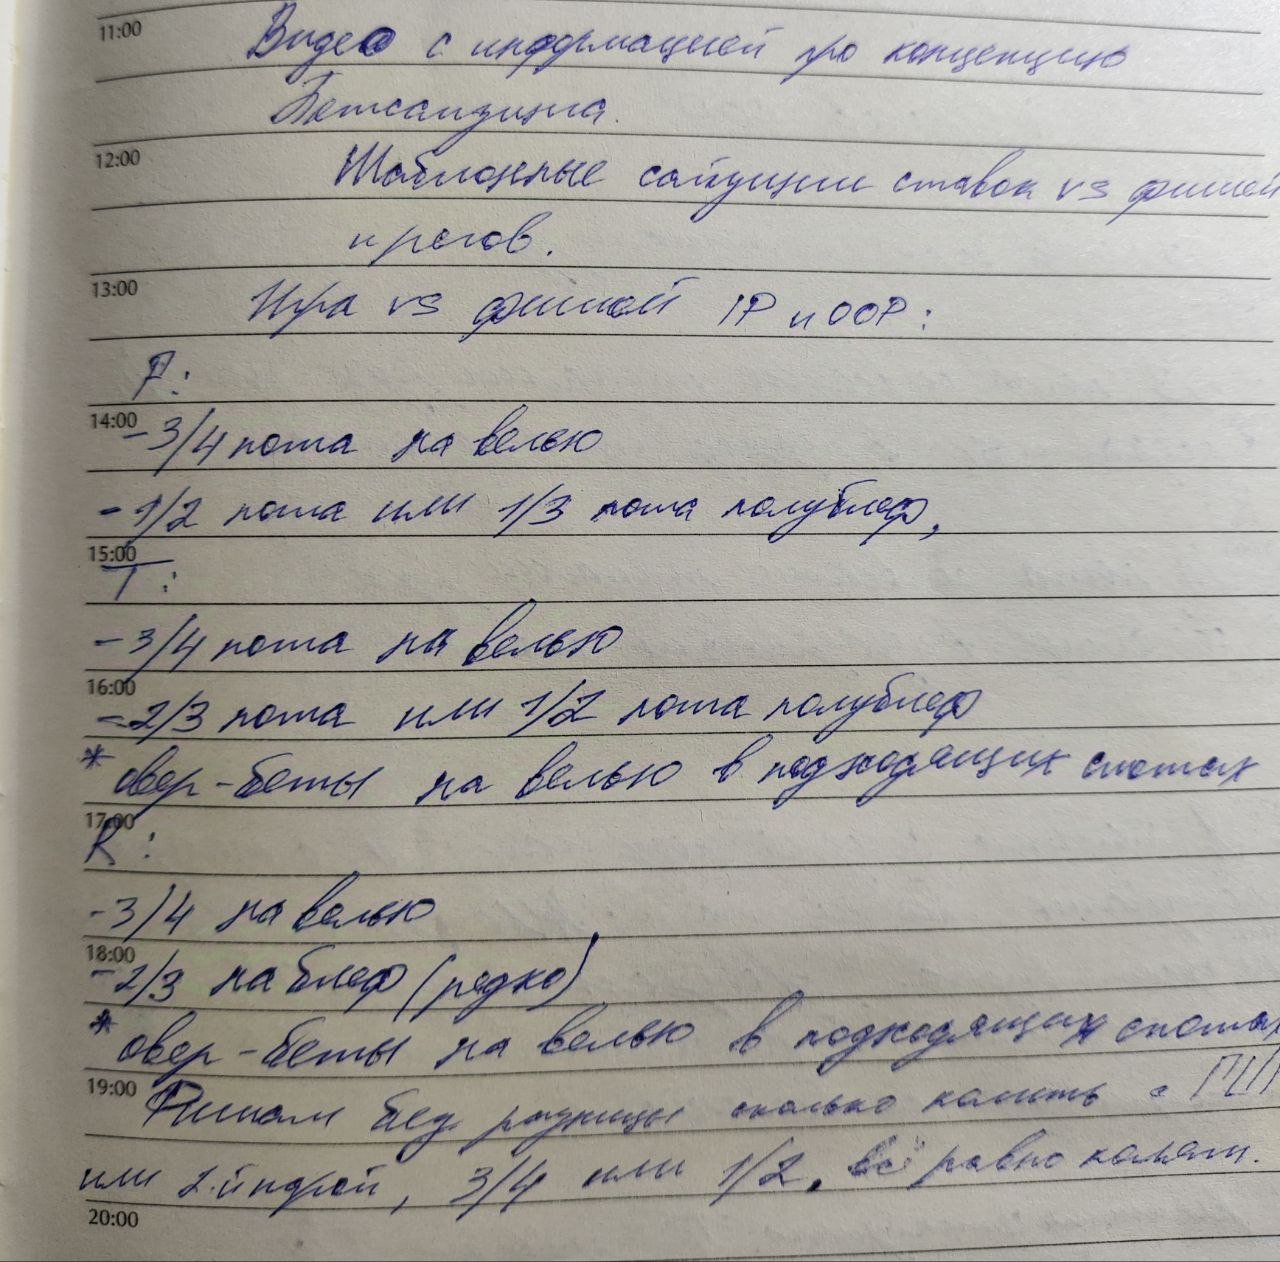 11:00
Видео с информацией про концепцию
Бетсайзинга.
12:00
Шаблонные сайзинги ставок vs фишей
и регов.
13:00
Игра vs фишей IP и OOP:
F:
14:00
- 3/4 пота на велью
- 1/2 пота или 1/3 пота полублеф,
15:00
T:
- 3/4 пота на велью
16:00
- 2/3 пота или 1/2 пота полублеф
* овер-беты на велью в подходящих спотах
17:00
R:
- 3/4 на велью
18:00
- 2/3 на блеф (редко)
* овер-беты на велью в подходящих спотах
19:00
Фишам без разницы сколько колить с
или 2-й парой, 3/4 или 1/2, всё равно колят.
20:00